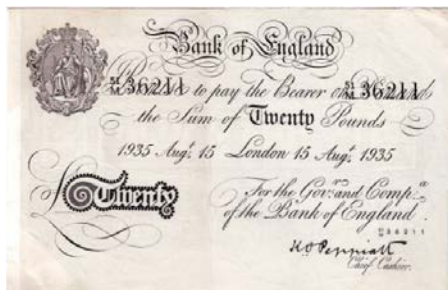 Bank of England
51/M 36211 to pay the Bearer on 51/M 36211
the Sum of Twenty Pounds
1935 Augt. 15 London 15 Augt. 1935
£Twenty
For the Govr. and Compa.
of the Bank of England.
36211
K O Peppiatt
Chief Cashier.